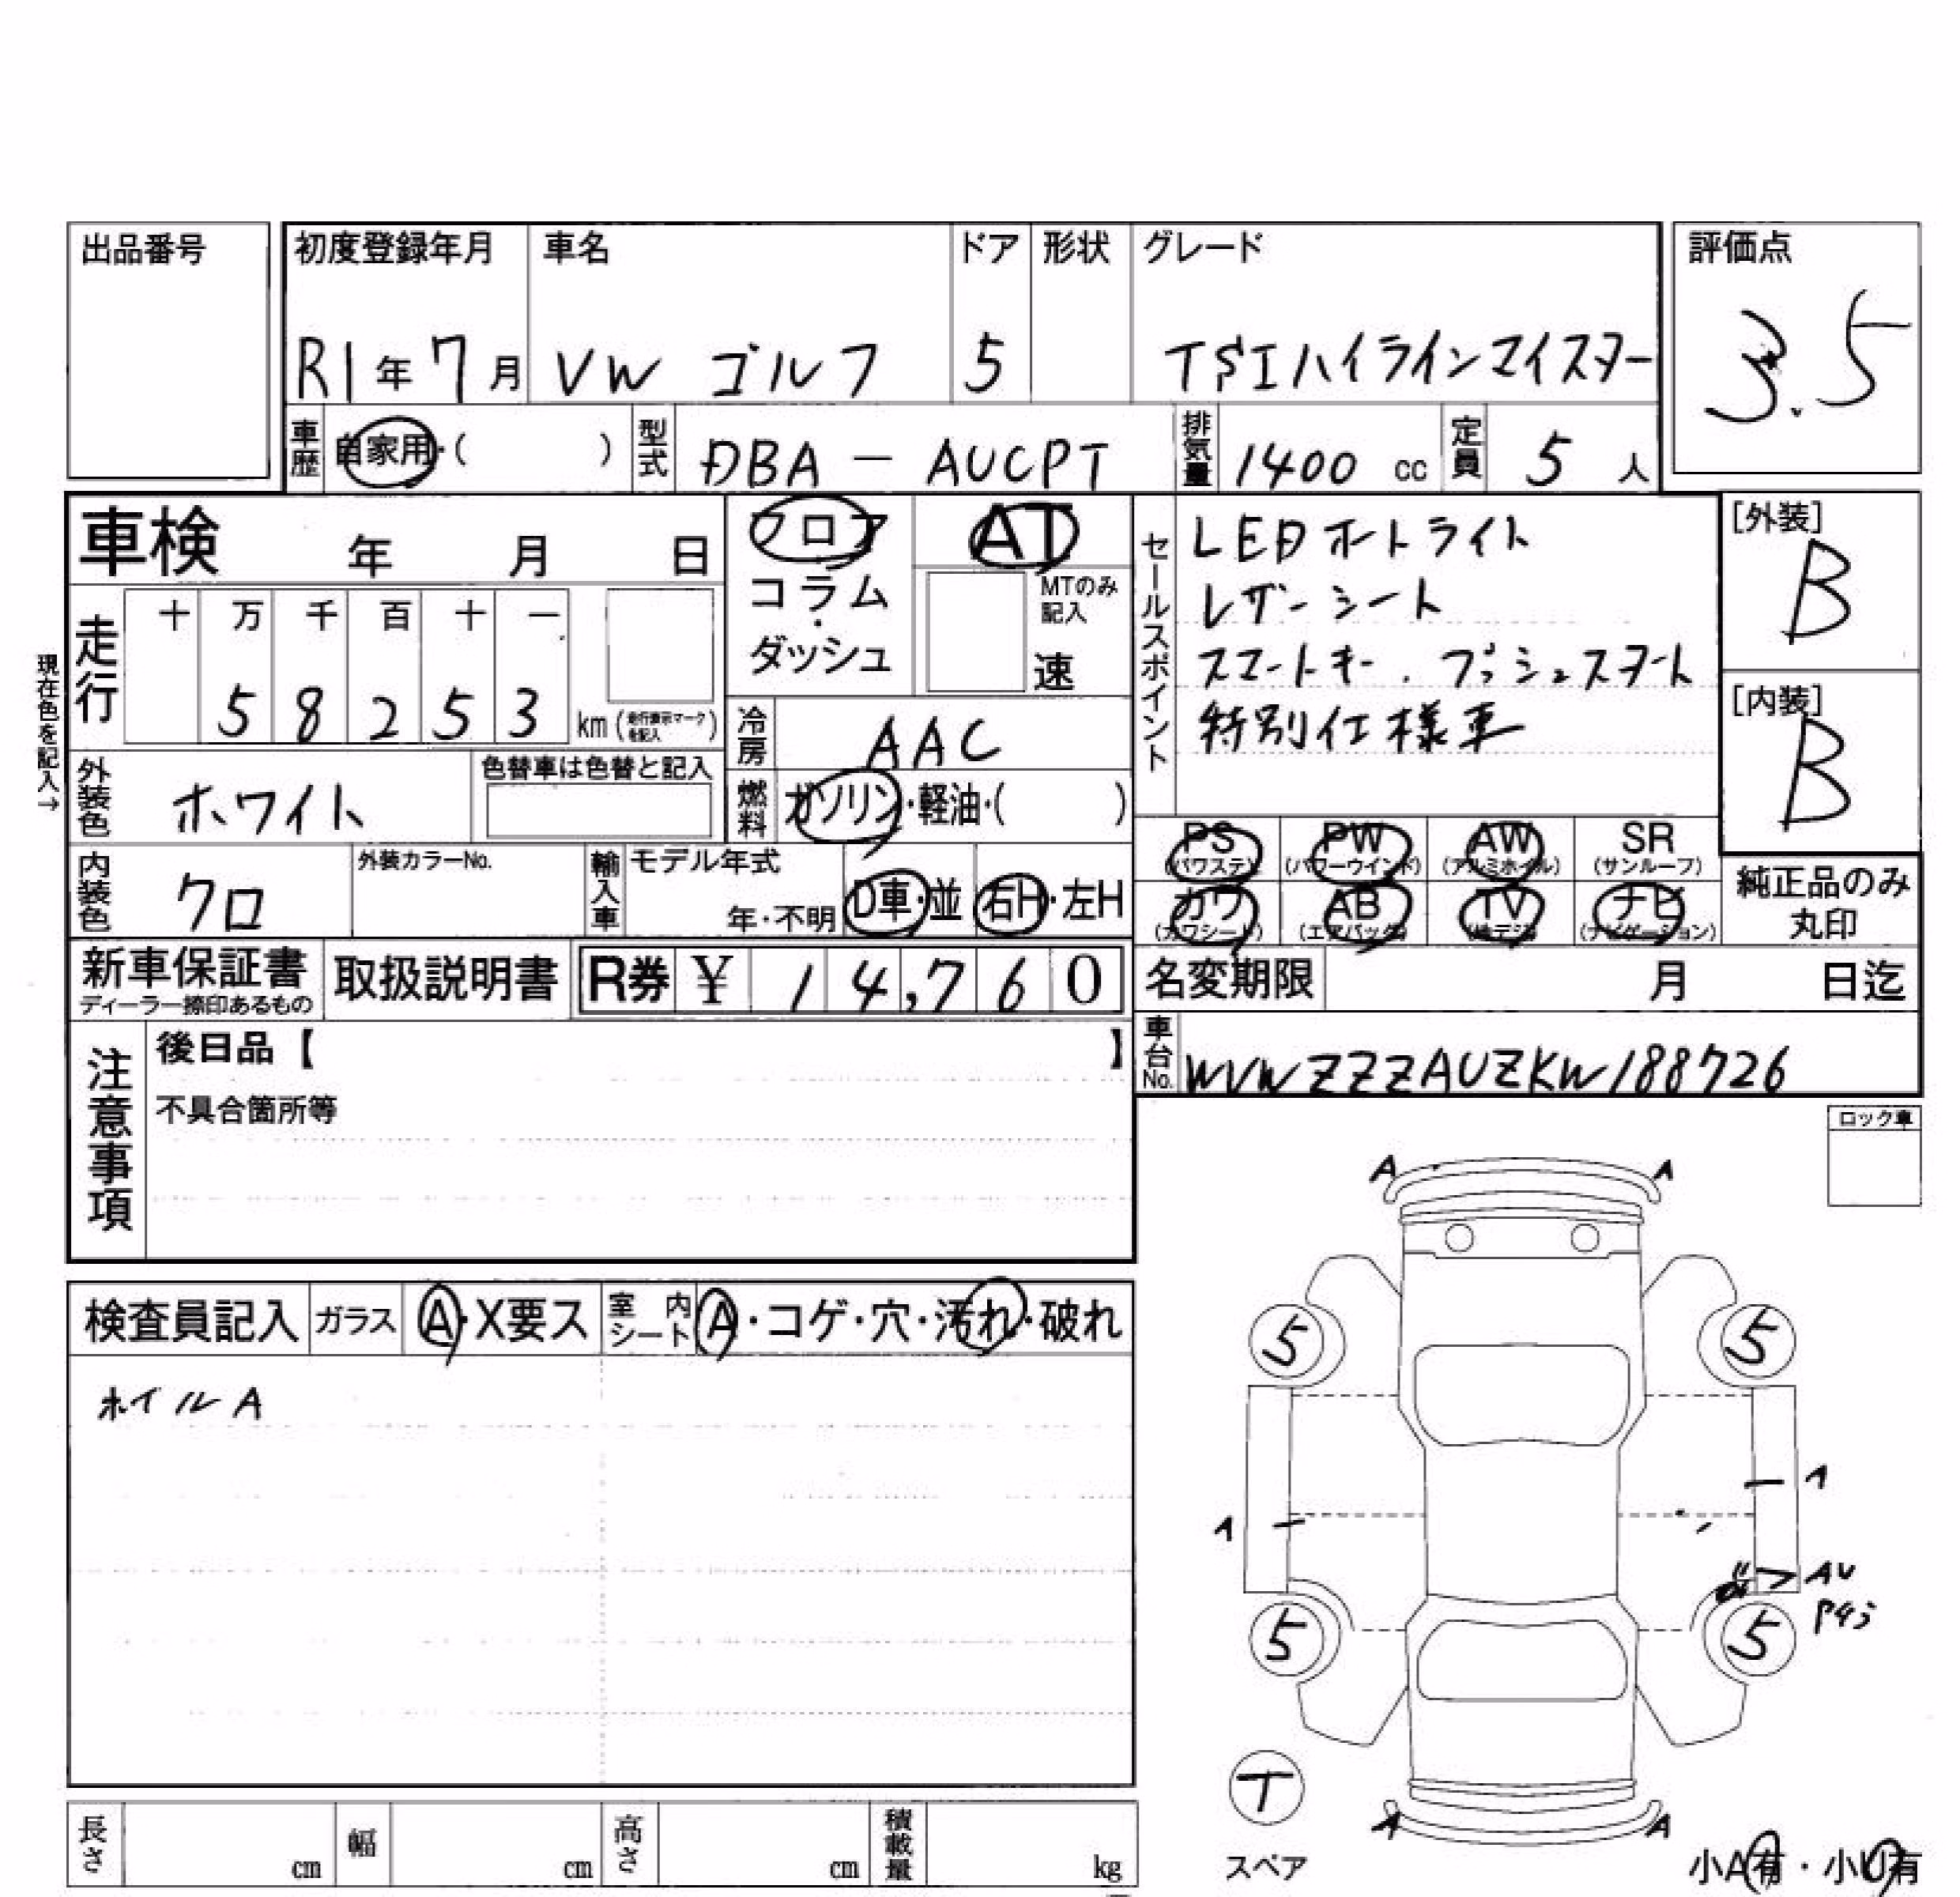 出品番号
初度登録年月 車名 ドア 形状 グレード 評価点
R1年7月 VW ゴルフ 5 TSIハイラインマイスター 3.5
車歴 自家用・( ) 型式 DBA-AUCPT 排気量 1400 cc 定員 5 人
車検 年 月 日
フロア
コラム
・
ダッシュ
AT
MTのみ
記入
速
セールスポイント
LEDオートライト
レザーシート
スマートキー.プッシュスタート
特別仕様車
[外装]
B
[内装]
B
現在色を記入→
走行 十 万 千 百 十 一
5 8 2 5 3 km(走行表示マークを記入)
冷房 AAC
外装色 ホワイト 色替車は色替と記入
燃料 ガソリン・軽油・( )
PS PW AW SR
(パワステ) (パワーウインド) (アルミホイル) (サンルーフ)
カワ AB TV ナビ
(カワシート) (エアバッグ) (地デジ) (ナビゲーション)
純正品のみ
丸印
内装色 クロ 外装カラーNo. 輸入車 モデル年式
年・不明 D車・並 右H・左H
新車保証書 取扱説明書 R券 ¥ 1 4,7 6 0
ディーラー捺印あるもの
名変期限 月 日迄
車台No. WVWZZZAUZKW188726
注意事項
後日品【 】
不具合箇所等
ロック車
検査員記入 ガラス A・X要ス 室内シート A・コゲ・穴・汚れ・破れ
ホイルA
A A
5 5
1
1
AU
5 5
T
スペア
A A
小A有・小U有
長さ cm 幅 cm 高さ cm 積載量 kg